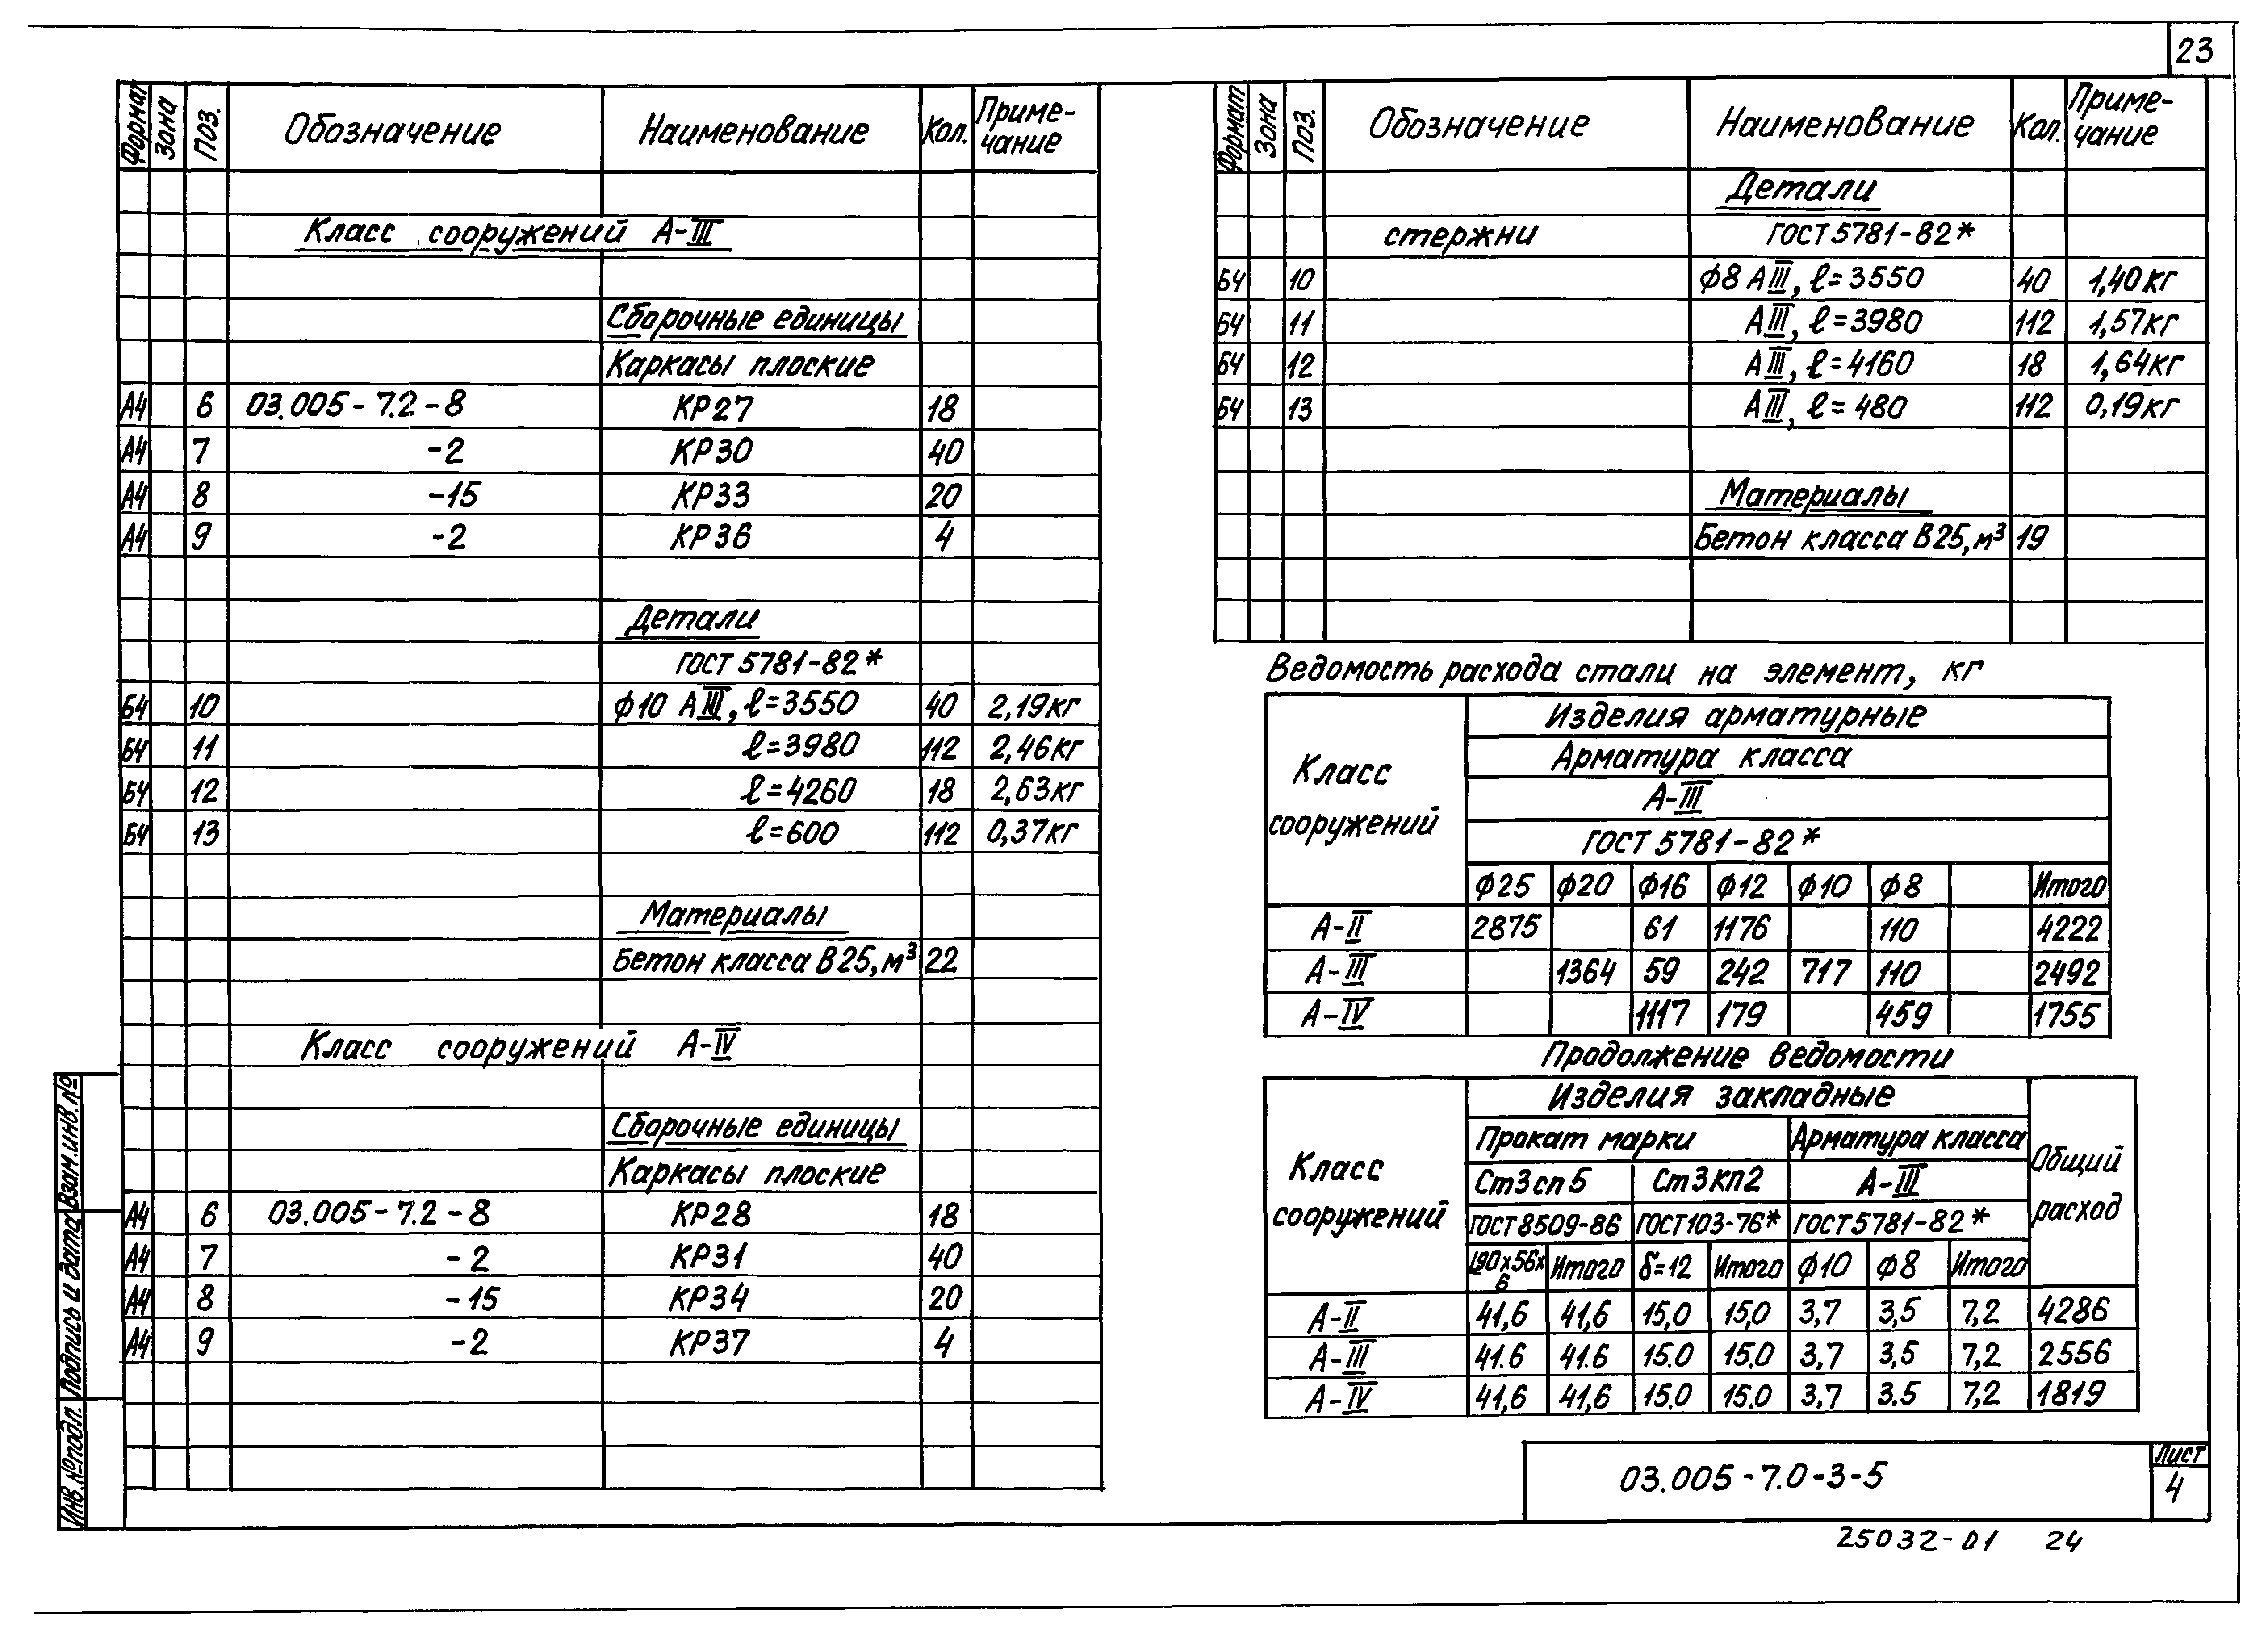 23
Формат Зона Поз. Обозначение Наименование Кол. Приме-
чание
Класс сооружений А-III
Сборочные единицы
Каркасы плоские
А4 6 03.005-7.2-8 КР27 18
А4 7 -2 КР30 40
А4 8 -15 КР33 20
А4 9 -2 КР36 4
Детали
ГОСТ 5781-82*
БЧ 10 ф10 АIII, ℓ=3550 40 2,19кг
БЧ 11 ℓ=3980 112 2,46кг
БЧ 12 ℓ=4260 18 2,63кг
БЧ 13 ℓ=600 112 0,37кг
Материалы
Бетон класса В25, м³ 22
Класс сооружений А-IV
Сборочные единицы
Каркасы плоские
А4 6 03.005-7.2-8 КР28 18
А4 7 -2 КР31 40
А4 8 -15 КР34 20
А4 9 -2 КР37 4
Формат Зона Поз. Обозначение Наименование Кол. Приме-
чание
Детали
стержни ГОСТ 5781-82*
БЧ 10 ф8 АIII, ℓ=3550 40 1,40кг
БЧ 11 АIII, ℓ=3980 112 1,57кг
БЧ 12 АIII, ℓ=4160 18 1,64кг
БЧ 13 АIII, ℓ=480 112 0,19кг
Материалы
Бетон класса В25, м³ 19
Ведомость расхода стали на элемент, кг
Класс
сооружений
Изделия арматурные
Арматура класса
А-III
ГОСТ 5781-82*
ф25 ф20 ф16 ф12 ф10 ф8 Итого
А-II 2875 61 1176 110 4222
А-III 1364 59 242 717 110 2492
А-IV 1117 179 459 1755
Продолжение ведомости
Класс
сооружений
Изделия закладные
Общий
расход
Прокат марки Арматура класса
Ст3сп5 Ст3кп2 А-III
ГОСТ8509-86 ГОСТ103-76* ГОСТ5781-82*
L90х56х
6 Итого δ=12 Итого ф10 ф8 Итого
А-II 41,6 41,6 15,0 15,0 3,7 3,5 7,2 4286
А-III 41.6 41.6 15.0 15.0 3.7 3,5 7,2 2556
А-IV 41,6 41,6 15.0 15.0 3.7 3.5 7,2 1819
03.005-7.0-3-5
Лист
4
25032-01 24
Инв.№подл. Подпись и дата Взам.инв.№